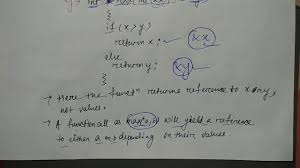 {
if (x > y)
return x; &x
else
return y; &y
}
→ Here the funcⁿ returns reference to x or y, not values.
→ A function call as max(a, b) will yield a reference
to either a or b depending on their values.